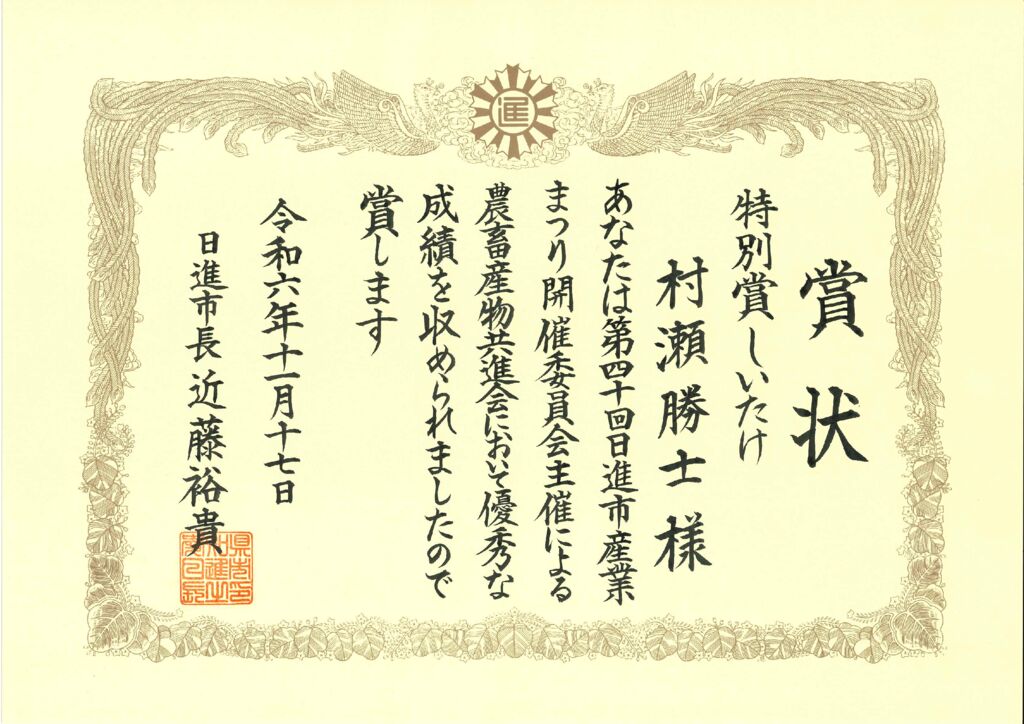 進
賞状
特別賞しいたけ
村瀬勝士様
あなたは第四十回日進市産業
まつり開催委員会主催による
農畜産物共進会において優秀な
成績を収められましたので
賞します
令和六年十一月十七日
日進市長 近藤裕貴